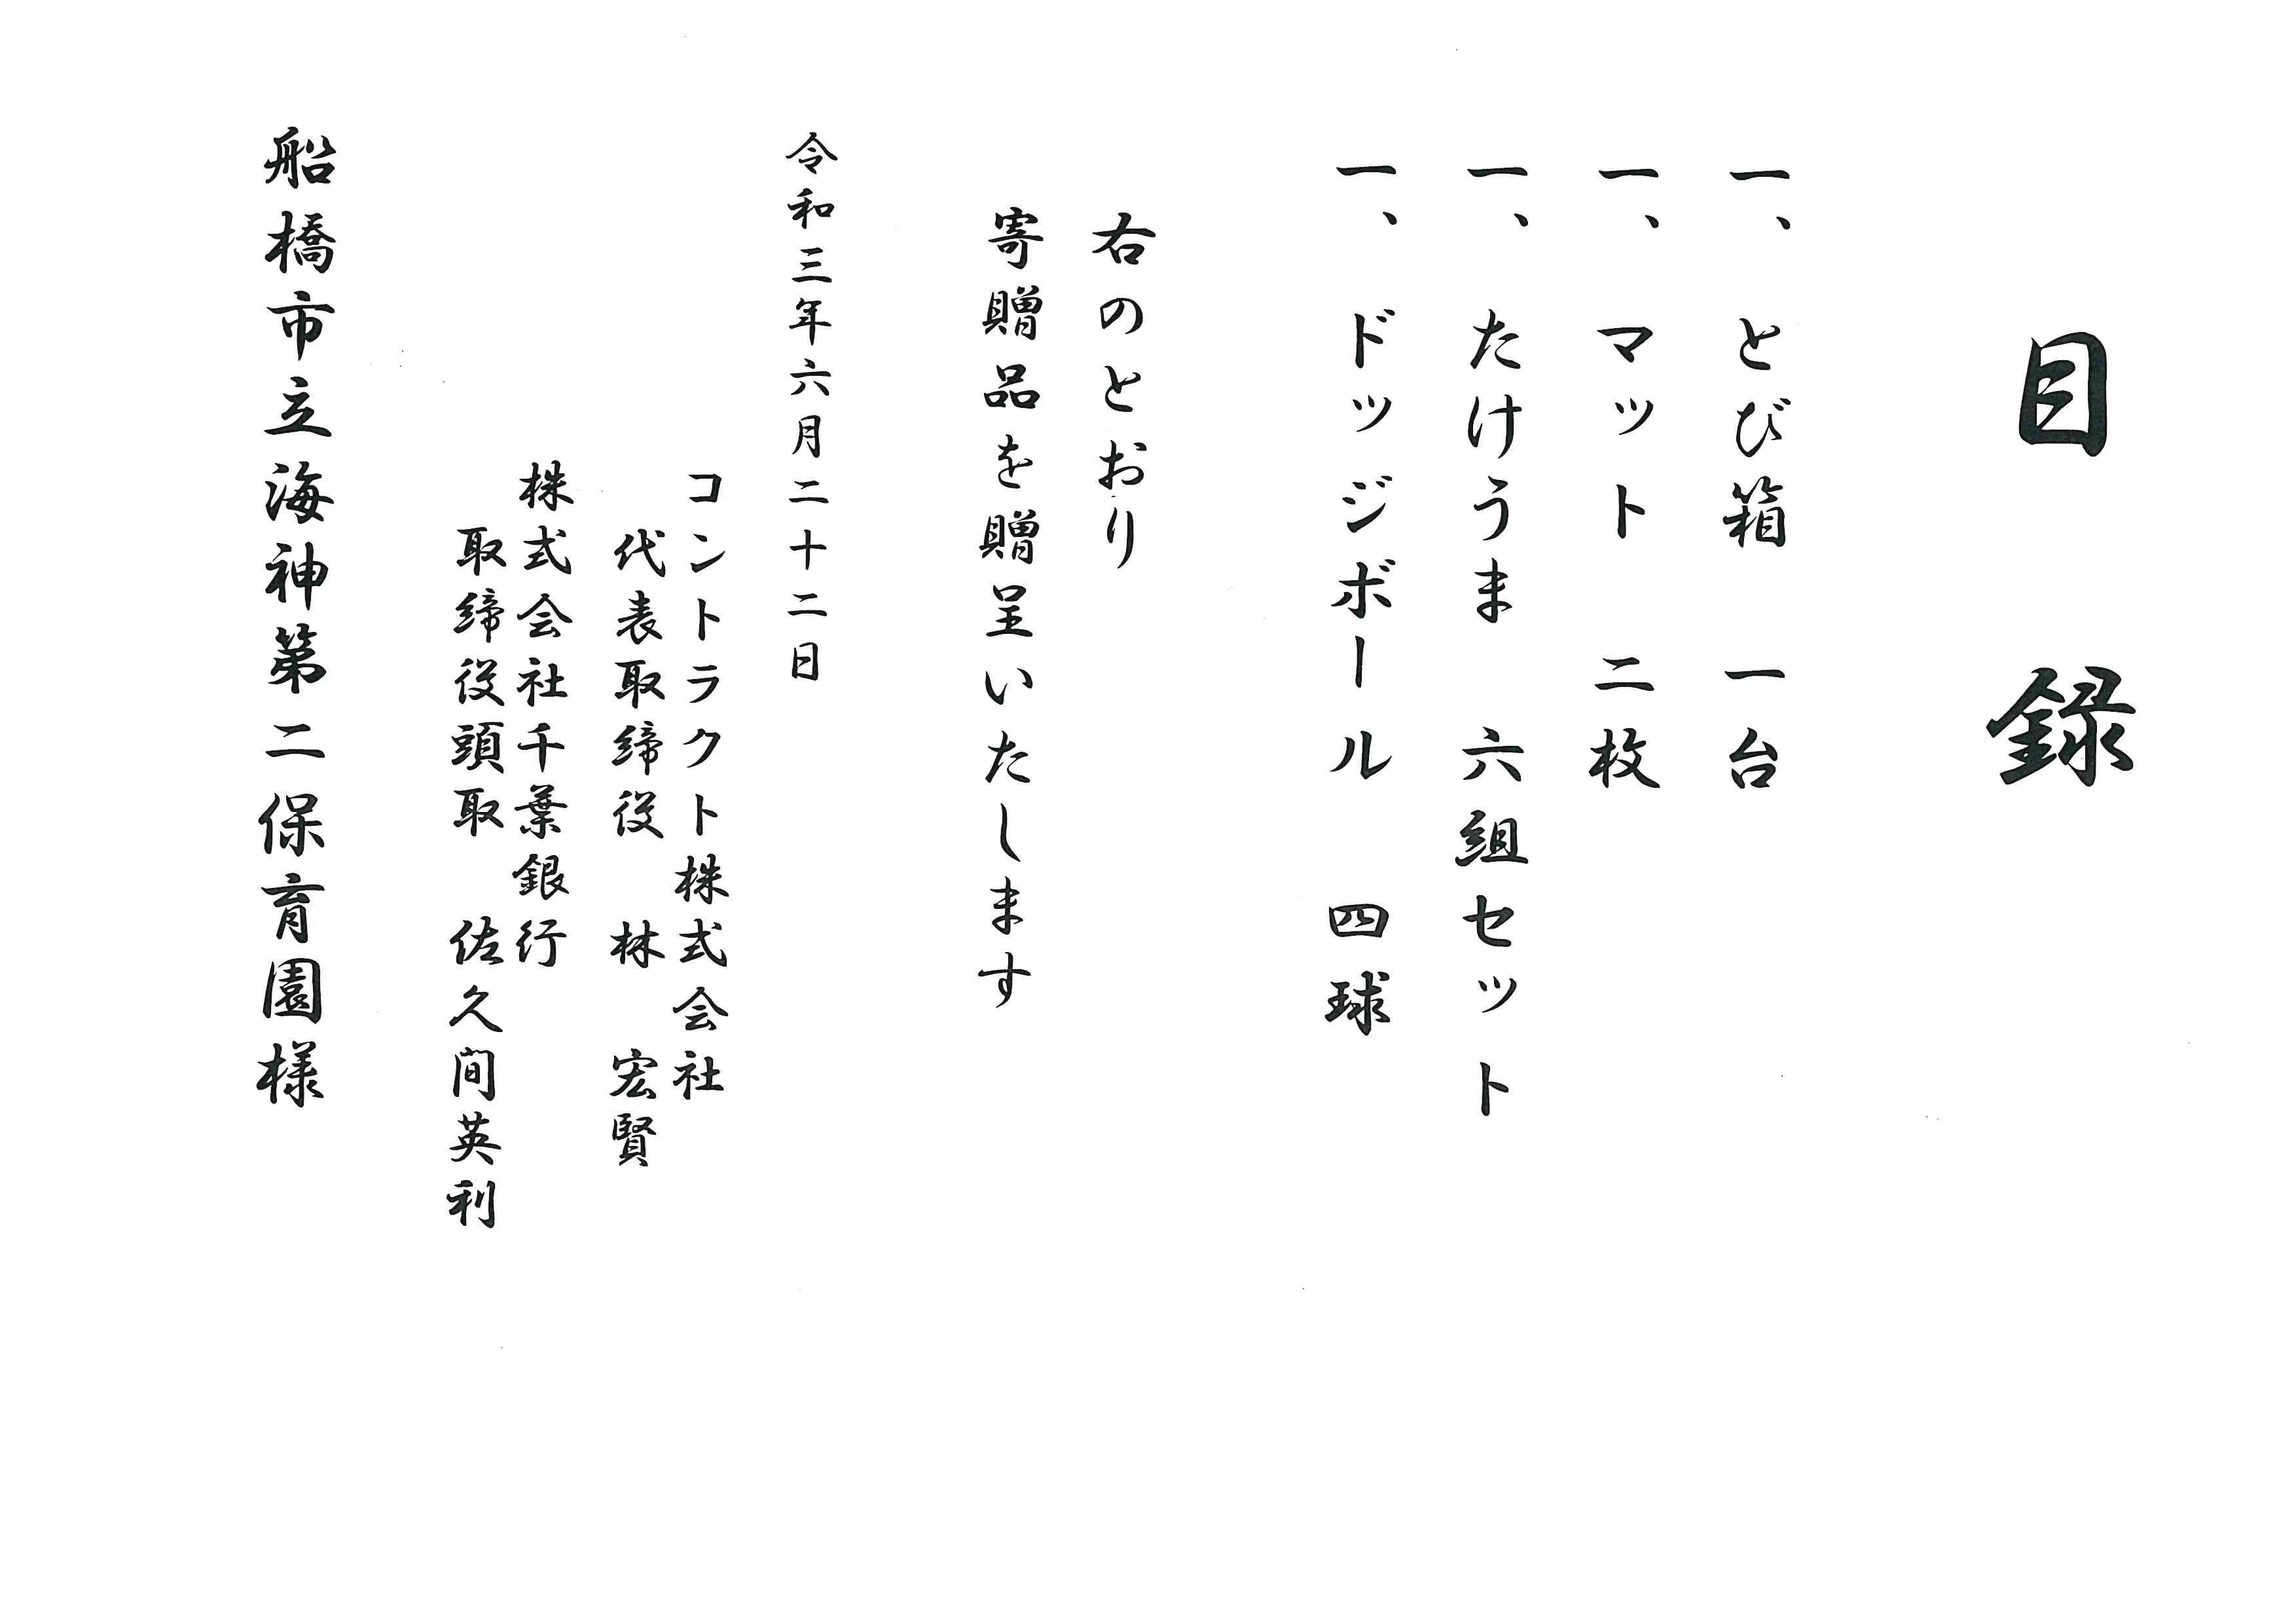 目録
一、とび箱　一台
一、マット　二枚
一、たけうま　六組セット
一、ドッジボール　四球
右のとおり
寄贈品を贈呈いたします
令和三年六月二十二日
コントラクト株式会社
代表取締役　林　宏賢
株式会社千葉銀行
取締役頭取　佐久間英利
船橋市立海神第二保育園様